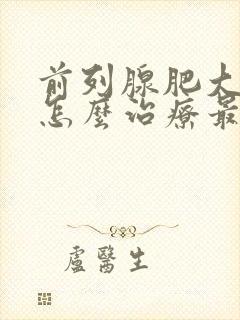 前列腺肥大
怎麼治療最
盧醫生